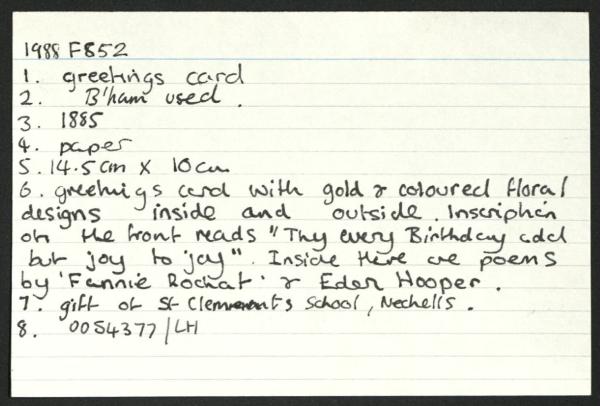 1988 F852
1. greetings card
2. B'ham used.
3. 1885
4. paper
5. 14.5 cm x 10 cm
6. greetings card with gold & coloured floral
designs inside and outside. Inscription
on the front reads "Thy every Birthday add
but joy to joy". Inside there are poems
by 'Fannie Rochat' & Eden Hooper.
7. gift of St Clements School, Nechells.
8. 0054377/LH